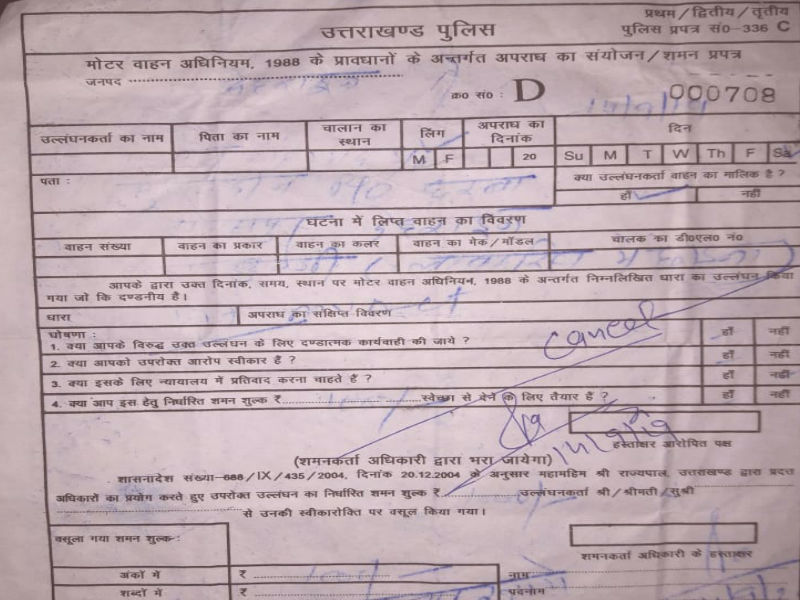 प्रथम/द्वितीय/तृतीय
उत्तराखण्ड पुलिस
पुलिस प्रपत्र सं0-336 C
मोटर वाहन अधिनियम, 1988 के प्रावधानों के अन्तर्गत अपराध का संयोजन/शमन प्रपत्र
जनपद
क्र0 सं0 : D 000708
उल्लंघनकर्ता का नाम पिता का नाम चालान का स्थान लिंग अपराध का दिनांक दिन
M F 20 Su M T W Th F Sa
पता : क्या उल्लंघनकर्ता वाहन का मालिक है ?
हाँ नहीं
घटना में लिप्त वाहन का विवरण
वाहन संख्या वाहन का प्रकार वाहन का कलर वाहन का मेक/मॉडल चालक का डी0एल0 नं0
आपके द्वारा उक्त दिनांक, समय, स्थान पर मोटर वाहन अधिनियन, 1988 के अन्तर्गत निम्नलिखित धारा का उल्लंघन किया
गया जो कि दण्डनीय है।
धारा अपराध का संक्षिप्त विवरण
घोषणा :
1. क्या आपके विरुद्ध उक्त उल्लंघन के लिए दण्डात्मक कार्यवाही की जाये ? हाँ नहीं
cancel
2. क्या आपको उपरोक्त आरोप स्वीकार हैं ? हाँ नहीं
3. क्या इसके लिए न्यायालय में प्रतिवाद करना चाहते हैं ? हाँ नहीं
4. क्या आप इस हेतु निर्धारित शमन शुल्क ₹ स्वेच्छा से देने के लिए तैयार हैं ? हाँ नहीं
हस्ताक्षर आरोपित पक्ष
(शमनकर्ता अधिकारी द्वारा भरा जायेगा)
शासनादेश संख्या-688/IX/435/2004, दिनांक 20.12.2004 के अनुसार महामहिम श्री राज्यपाल, उत्तराखण्ड द्वारा प्रदत्त
अधिकारों का प्रयोग करते हुए उपरोक्त उल्लंघन का निर्धारित शमन शुल्क ₹ उल्लंघनकर्ता श्री/श्रीमती/सुश्री
से उनकी स्वीकारोक्ति पर वसूल किया गया।
वसूला गया शमन शुल्क :
शमनकर्ता अधिकारी के हस्ताक्षर
अंकों में ₹ नाम
शब्दों में ₹ पदनाम